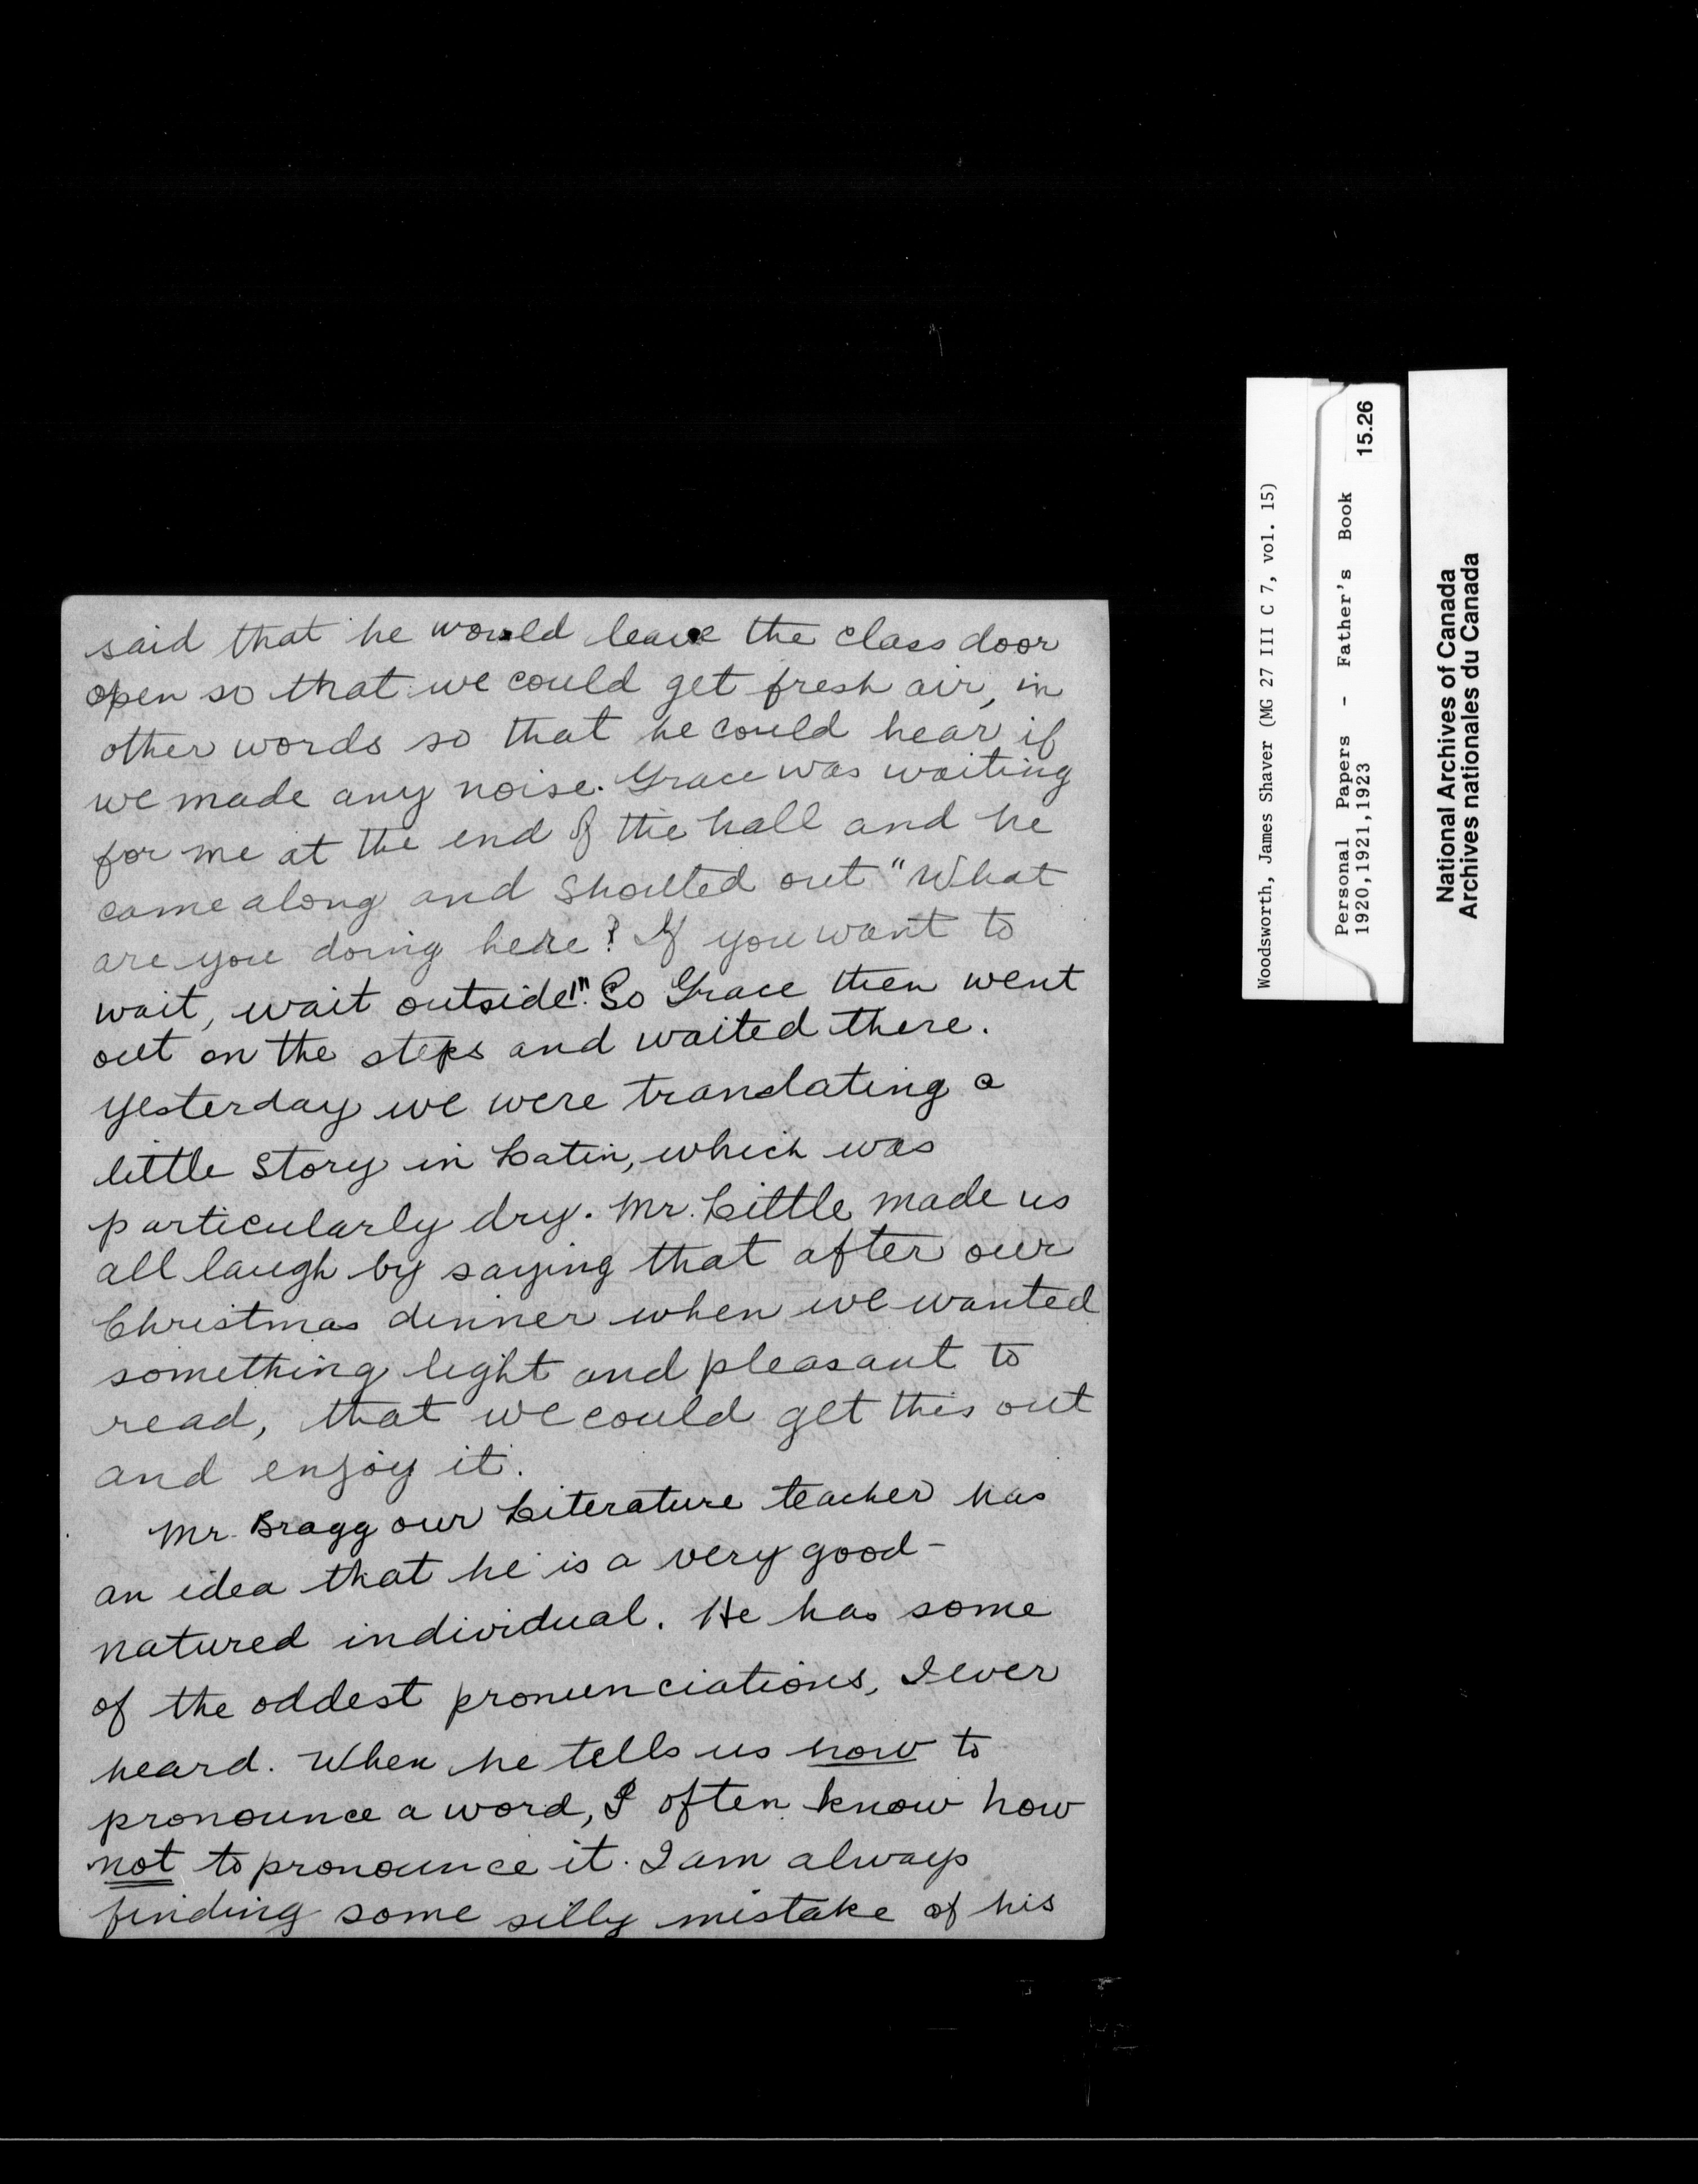 said that he would leave the class door
open so that we could get fresh air, in
other words so that he could hear if
we made any noise. Grace was waiting
for me at the end of the hall and he
came along and shouted out "What
are you doing here? If you want to
wait, wait outside!" So Grace then went
out on the steps and waited there.
Yesterday we were translating a
little story in Latin, which was
particularly dry. Mr. Little made us
all laugh by saying that after our
Christmas dinner when we wanted
something light and pleasant to
read, that we could get this out
and enjoy it.
Mr. Bragg our Literature teacher has
an idea that he is a very good-
natured individual. He has some
of the oddest pronunciations, I ever
heard. When he tells us how to
pronounce a word, I often know how
not to pronounce it. I am always
finding some silly mistake of his
Woodsworth, James Shaver (MG 27 III C 7, vol. 15)
Personal Papers - Father's Book 15.26
1920,1921,1923
National Archives of Canada
Archives nationales du Canada